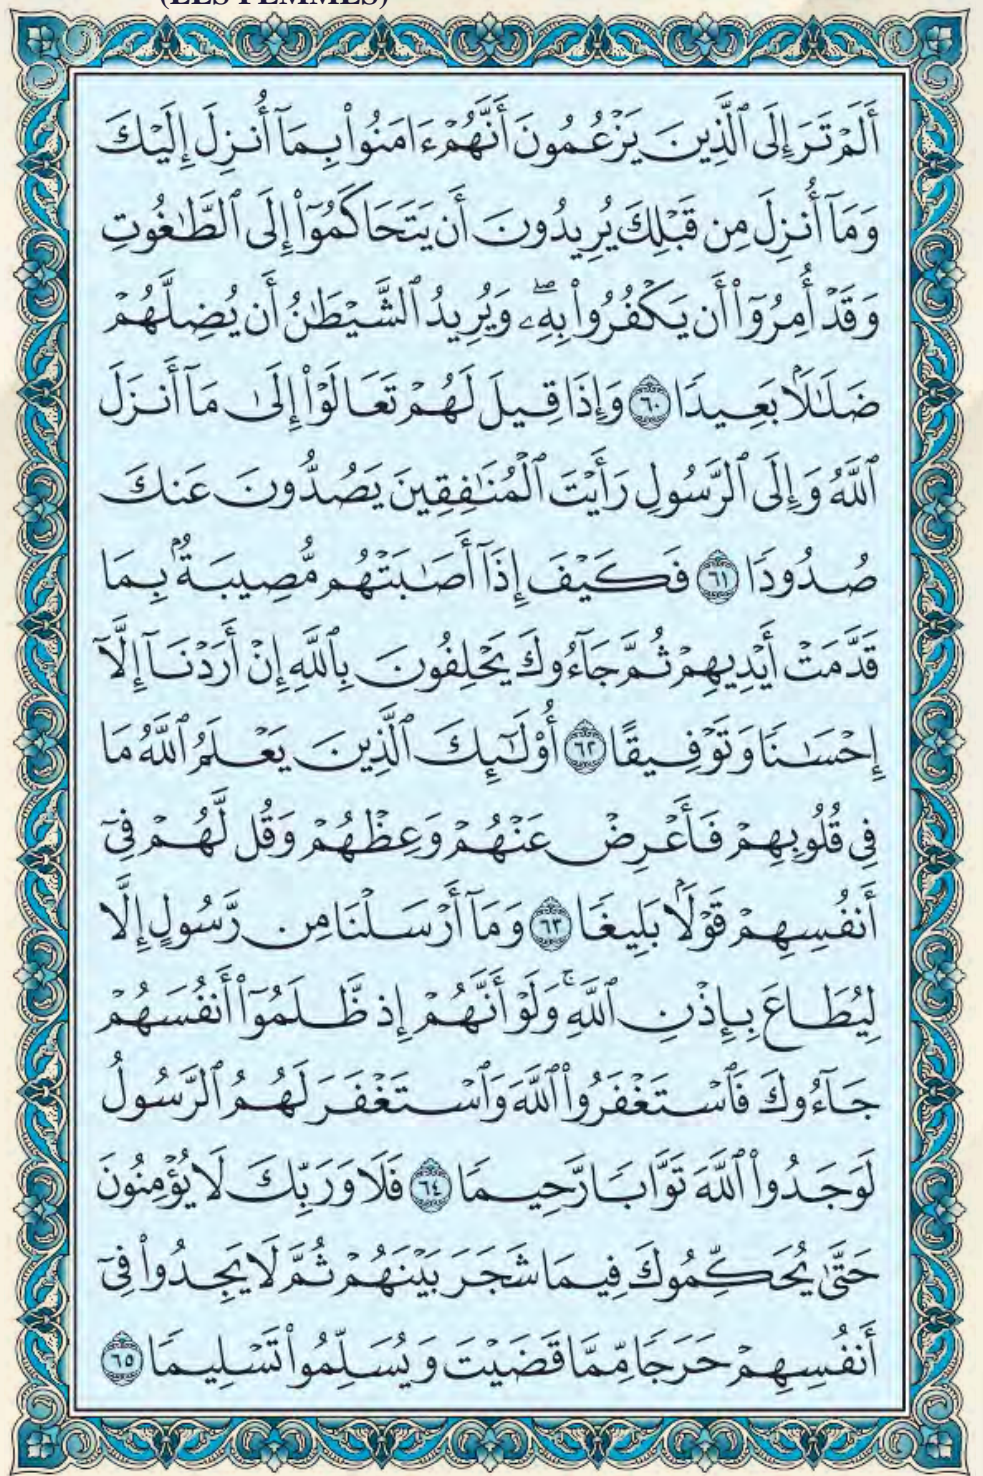 (LES FEMMES)
أَلَمْ تَرَ إِلَى ٱلَّذِينَ يَزْعُمُونَ أَنَّهُمْ ءَامَنُوا۟ بِمَآ أُنزِلَ إِلَيْكَ
وَمَآ أُنزِلَ مِن قَبْلِكَ يُرِيدُونَ أَن يَتَحَاكَمُوٓا۟ إِلَى ٱلطَّٰغُوتِ
وَقَدْ أُمِرُوٓا۟ أَن يَكْفُرُوا۟ بِهِۦۖ وَيُرِيدُ ٱلشَّيْطَٰنُ أَن يُضِلَّهُمْ
ضَلَٰلًۢا بَعِيدًا ٦٠ وَإِذَا قِيلَ لَهُمْ تَعَالَوْا۟ إِلَىٰ مَآ أَنزَلَ
ٱللَّهُ وَإِلَى ٱلرَّسُولِ رَأَيْتَ ٱلْمُنَٰفِقِينَ يَصُدُّونَ عَنكَ
صُدُودًا ٦١ فَكَيْفَ إِذَآ أَصَٰبَتْهُم مُّصِيبَةٌۢ بِمَا
قَدَّمَتْ أَيْدِيهِمْ ثُمَّ جَآءُوكَ يَحْلِفُونَ بِٱللَّهِ إِنْ أَرَدْنَآ إِلَّآ
إِحْسَٰنًا وَتَوْفِيقًا ٦٢ أُو۟لَٰٓئِكَ ٱلَّذِينَ يَعْلَمُ ٱللَّهُ مَا
فِى قُلُوبِهِمْ فَأَعْرِضْ عَنْهُمْ وَعِظْهُمْ وَقُل لَّهُمْ فِىٓ
أَنفُسِهِمْ قَوْلًۢا بَلِيغًا ٦٣ وَمَآ أَرْسَلْنَا مِن رَّسُولٍ إِلَّا
لِيُطَاعَ بِإِذْنِ ٱللَّهِۚ وَلَوْ أَنَّهُمْ إِذ ظَّلَمُوٓا۟ أَنفُسَهُمْ
جَآءُوكَ فَٱسْتَغْفَرُوا۟ ٱللَّهَ وَٱسْتَغْفَرَ لَهُمُ ٱلرَّسُولُ
لَوَجَدُوا۟ ٱللَّهَ تَوَّابًا رَّحِيمًا ٦٤ فَلَا وَرَبِّكَ لَا يُؤْمِنُونَ
حَتَّىٰ يُحَكِّمُوكَ فِيمَا شَجَرَ بَيْنَهُمْ ثُمَّ لَا يَجِدُوا۟ فِىٓ
أَنفُسِهِمْ حَرَجًا مِّمَّا قَضَيْتَ وَيُسَلِّمُوا۟ تَسْلِيمًا ٦٥